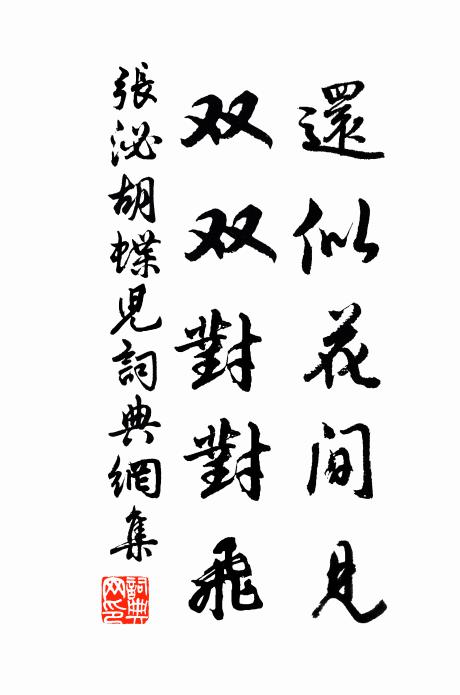 還似花間見
双双對對飛
張泌胡蝶児詞典網集
詞典网印